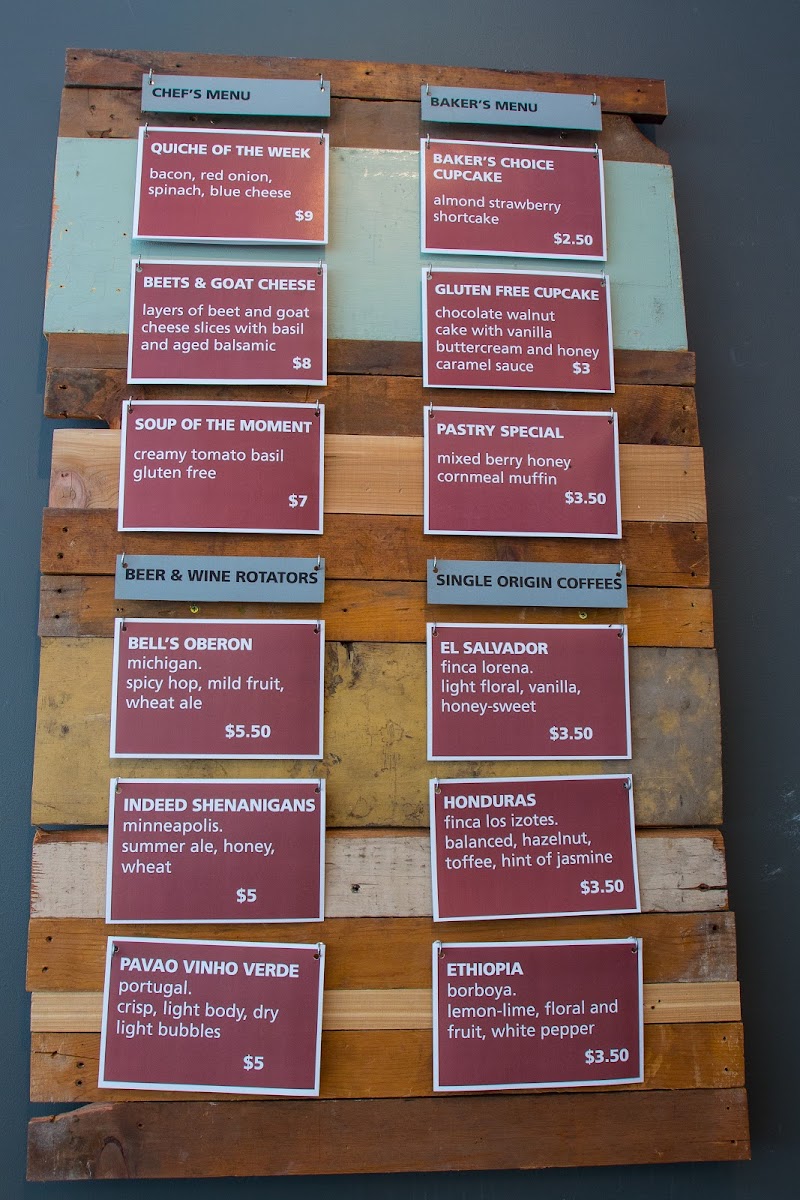 CHEF'S MENU
QUICHE OF THE WEEK
bacon, red onion,
spinach, blue cheese
$9
BEETS & GOAT CHEESE
layers of beet and goat
cheese slices with basil
and aged balsamic
$8
SOUP OF THE MOMENT
creamy tomato basil
gluten free
$7
BEER & WINE ROTATORS
BELL'S OBERON
michigan.
spicy hop, mild fruit,
wheat ale
$5.50
INDEED SHENANIGANS
minneapolis.
summer ale, honey,
wheat
$5
PAVAO VINHO VERDE
portugal.
crisp, light body, dry
light bubbles
$5
BAKER'S MENU
BAKER'S CHOICE
CUPCAKE
almond strawberry
shortcake
$2.50
GLUTEN FREE CUPCAKE
chocolate walnut
cake with vanilla
buttercream and honey
caramel sauce $3
PASTRY SPECIAL
mixed berry honey
cornmeal muffin
$3.50
SINGLE ORIGIN COFFEES
EL SALVADOR
finca lorena.
light floral, vanilla,
honey-sweet
$3.50
HONDURAS
finca los izotes.
balanced, hazelnut,
toffee, hint of jasmine
$3.50
ETHIOPIA
borboya.
lemon-lime, floral and
fruit, white pepper
$3.50